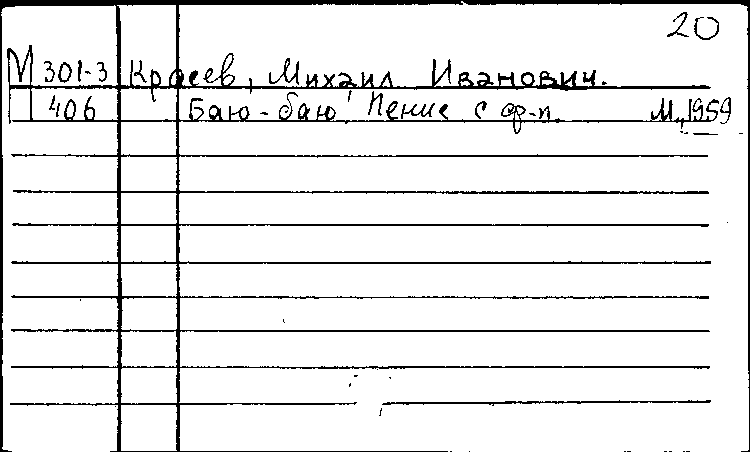 20
М 301-3 Красев, Михаил Иванович.
406 Баю-баю! Пение с ф-п. М., 1959